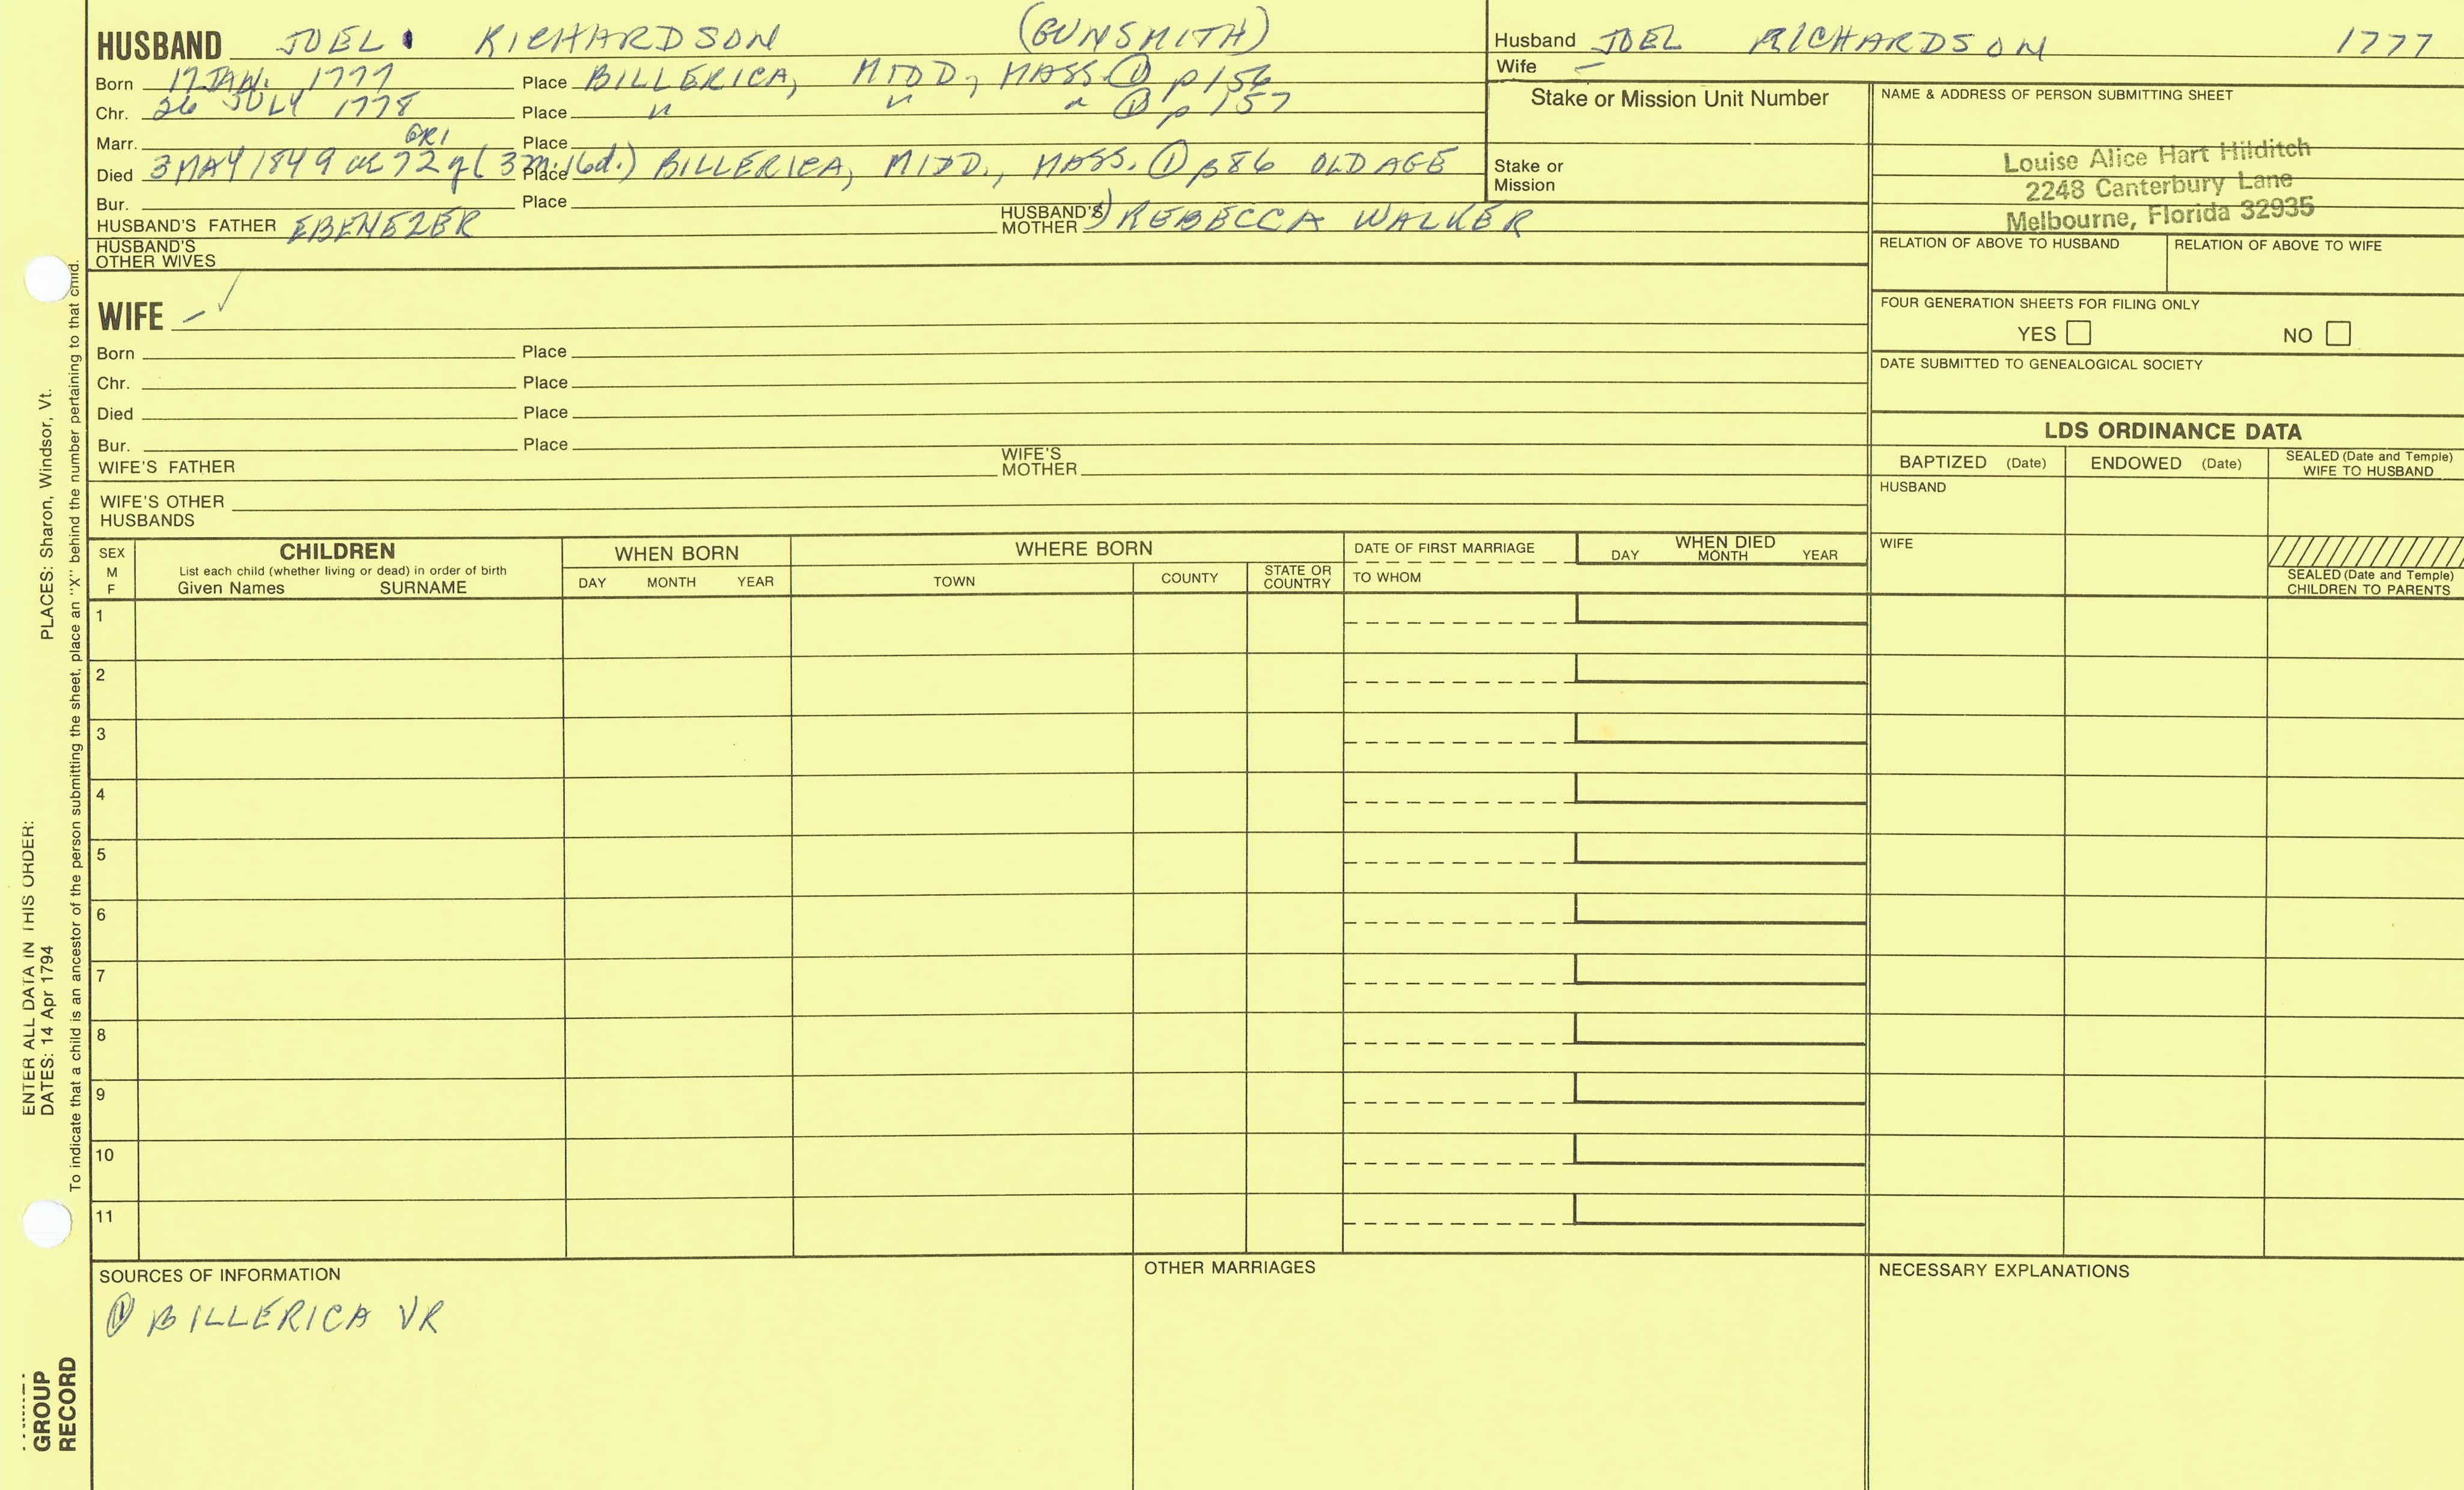 HUSBAND JOEL RICHARDSON (GUNSMITH)
Born 17 JAN. 1777 Place BILLERICA, MIDD, MASS. ① p 156
Chr. 26 JULY 1778 Place " " " ① p 157
Marr. Place
GR1
Died 3 MAY 1849 ae 72 y ( 3 m. 16 d.) Place BILLERICA, MIDD., MASS. ① p86 OLD AGE
Bur. Place
HUSBAND'S FATHER EBENEZER HUSBAND'S MOTHER REBECCA WALKER
HUSBAND'S OTHER WIVES
WIFE –
Born Place
Chr. Place
Died Place
Bur. Place
WIFE'S FATHER WIFE'S MOTHER
WIFE'S OTHER HUSBANDS
Husband JOEL RICHARDSON 1777
Wife –
Stake or Mission Unit Number
Stake or Mission
NAME & ADDRESS OF PERSON SUBMITTING SHEET
Louise Alice Hart Hilditch
2248 Canterbury Lane
Melbourne, Florida 32935
RELATION OF ABOVE TO HUSBAND RELATION OF ABOVE TO WIFE
FOUR GENERATION SHEETS FOR FILING ONLY
YES NO
DATE SUBMITTED TO GENEALOGICAL SOCIETY
LDS ORDINANCE DATA
BAPTIZED (Date) ENDOWED (Date) SEALED (Date and Temple) WIFE TO HUSBAND
HUSBAND
WIFE
SEALED (Date and Temple) CHILDREN TO PARENTS
SEX M F
CHILDREN
List each child (whether living or dead) in order of birth
Given Names SURNAME
WHEN BORN
DAY MONTH YEAR
WHERE BORN
TOWN COUNTY STATE OR COUNTRY
DATE OF FIRST MARRIAGE
TO WHOM
WHEN DIED
DAY MONTH YEAR
1
2
3
4
5
6
7
8
9
10
11
SOURCES OF INFORMATION
① BILLERICA VR
OTHER MARRIAGES
NECESSARY EXPLANATIONS
ENTER ALL DATA IN THIS ORDER:
DATES: 14 Apr 1794 PLACES: Sharon, Windsor, Vt.
To indicate that a child is an ancestor of the person submitting the sheet, place an "X" behind the number pertaining to that child.
GROUP
RECORD